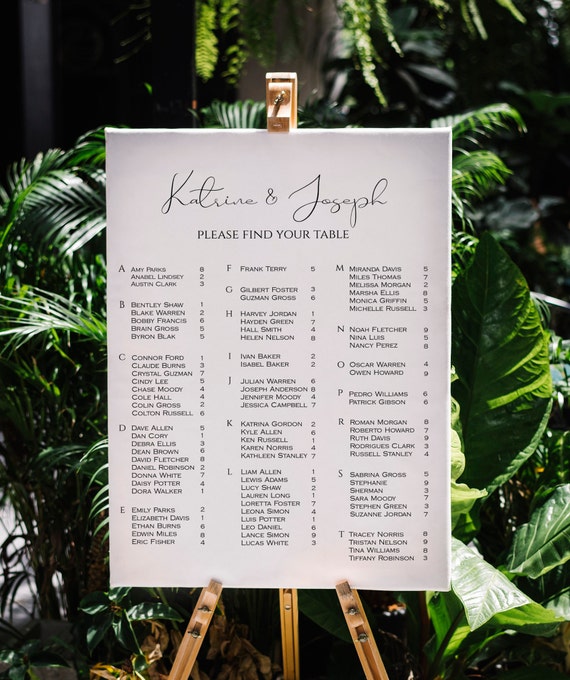 Katrine & Joseph
PLEASE FIND YOUR TABLE
A AMY PARKS 8
ANABEL LINDSEY 2
AUSTIN CLARK 3
B BENTLEY SHAW 1
BLAKE WARREN 2
BOBBY FRANCIS 6
BRAIN GROSS 5
BYRON BLAK 5
C CONNOR FORD 1
CLAUDE BURNS 3
CRYSTAL GUZMAN 7
CINDY LEE 5
CHASE MOODY 4
COLE HALL 4
COLIN GROSS 2
COLTON RUSSELL 6
D DAVE ALLEN 5
DAN CORY 1
DEBRA ELLIS 3
DEAN BROWN 6
DAVID FLETCHER 8
DANIEL ROBINSON 2
DONNA WHITE 7
DAISY POTTER 4
DORA WALKER 1
E EMILY PARKS 2
ELIZABETH DAVIS 1
ETHAN BURNS 6
EDWIN MILES 8
ERIC FISHER 4
F FRANK TERRY 5
G GILBERT FOSTER 3
GUZMAN GROSS 6
H HARVEY JORDAN 1
HAYDEN GREEN 7
HALL SMITH 4
HELEN NELSON 8
I IVAN BAKER 2
ISABEL BAKER 2
J JULIAN WARREN 6
JOSEPH ANDERSON 8
JENNIFER MOODY 4
JESSICA CAMPBELL 7
K KATRINA GORDON 2
KYLE ALLEN 6
KEN RUSSELL 1
KAREN NORRIS 4
KATHLEEN STANLEY 7
L LIAM ALLEN 1
LEWIS ADAMS 5
LUCY SHAW 2
LAUREN LONG 1
LORETTA FOSTER 7
LEONA SIMON 4
LUIS POTTER 1
LEO DANIEL 6
LANCE SIMON 9
LUCAS WHITE 3
M MIRANDA DAVIS 5
MILES THOMAS 7
MELISSA MORGAN 2
MARSHA ELLIS 8
MONICA GRIFFIN 5
MICHELLE RUSSELL 3
N NOAH FLETCHER 9
NINA LUIS 5
NANCY PEREZ 8
O OSCAR WARREN 4
OWEN HOWARD 9
P PEDRO WILLIAMS 6
PATRICK GIBSON 6
R ROMAN MORGAN 8
ROBERTO HOWARD 7
RUTH DAVIS 9
RODRIGUES CLARK 3
RUSSELL STANLEY 4
S SABRINA GROSS 5
STEPHANIE 9
SHERMAN 3
SARA MOODY 7
STEPHEN GREEN 3
SUZANNE JORDAN 7
T TRACEY NORRIS 8
TRISTAN NELSON 9
TINA WILLIAMS 8
TIFFANY ROBINSON 3